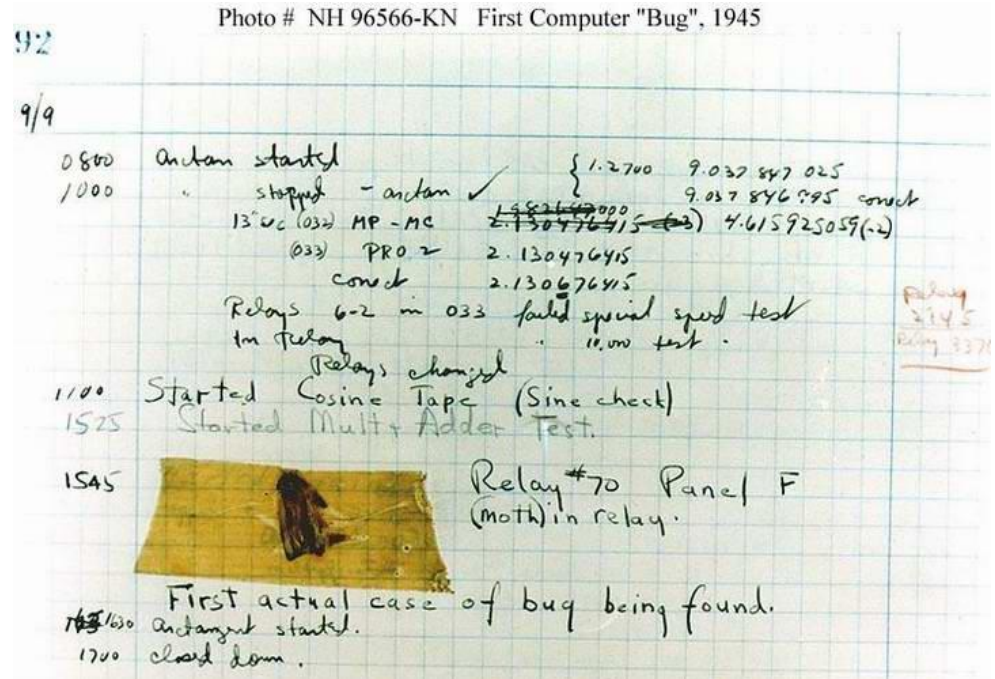 Photo # NH 96566-KN First Computer "Bug", 1945
92
9/9
0800 Antan started { 1.2700 9.037 847 025
1000 " stopped - antan ✓ 9.037 846 995 conect
13" uc (032) MP - MC 2.130476415 (-3) 4.615925059(-2)
(033) PRO 2 2.130476415
conect 2.130676415
Relays 6-2 in 033 failed special speed test
In Relay " 10,000 test .
Relays changed
Relay
2145
Relay 3370
1100 Started Cosine Tape (Sine check)
1525 Started Mult + Adder Test.
1545 Relay #70 Panel F
(moth) in relay.
First actual case of bug being found.
1630 antangent started.
1700 closed down .